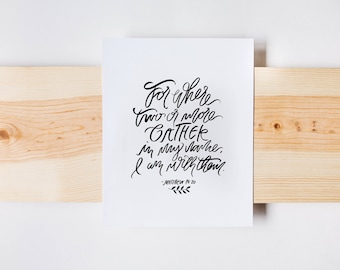 For where
two or more
GATHER
in my name,
I am with them.
MATTHEW 18:20